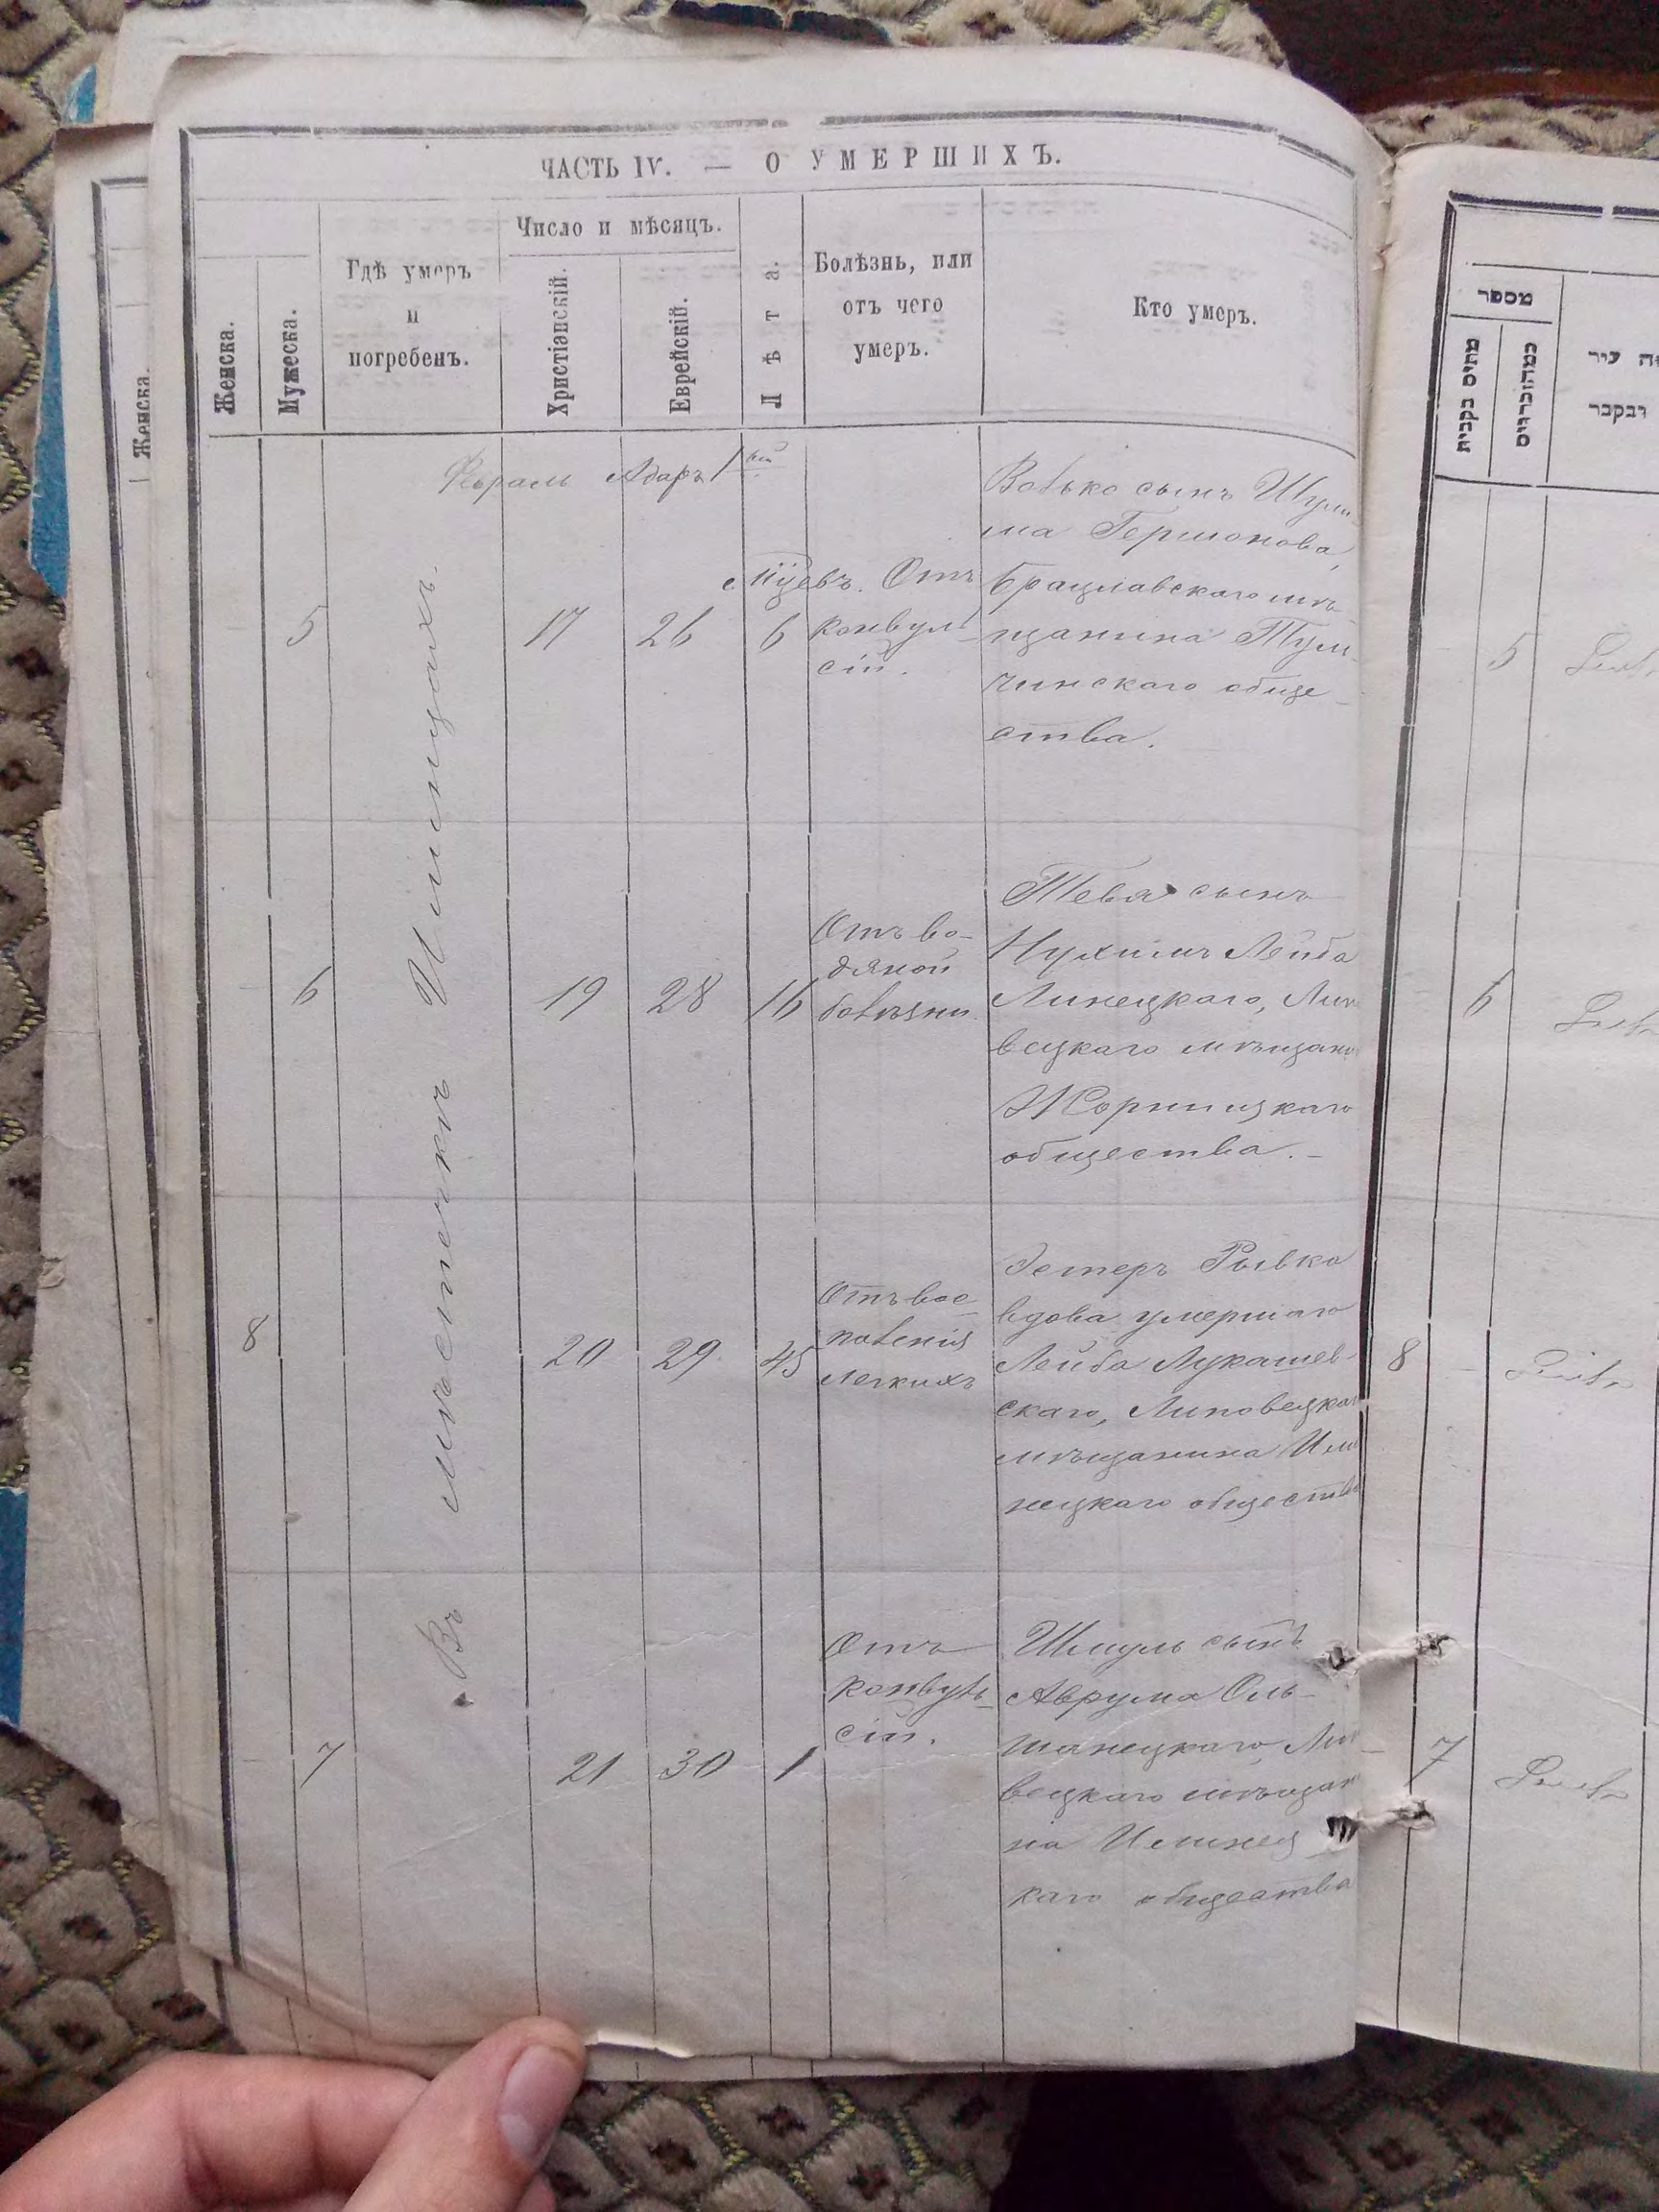 ЧАСТЬ IV. — О УМЕРШИХЪ.
Женска.
Мужеска.
Гдѣ умеръ
и
погребенъ.
Число и мѣсяцъ.
Христіанскій.
Еврейскій.
Лѣта.
Болѣзнь, или
отъ чего
умеръ.
Кто умеръ.
Въ мѣстечкѣ Илинцахъ.
Адаръ 1й
5
17
26
6
Отъ
конвуль
сій.
Волько сынъ
ма Гершонова,
Брацлавскаго мѣ
щанина Туль
чинскаго обще
ства.
6
19
28
16
Отъ во-
дяной
болѣзни.
Тевья сынъ
Нухимъ Лейба
Линецкаго,
вецкаго мѣщан
Жорнищкаго
общества. -
8
20
29
45
Отъ вос
поленія
легкихъ
Эстеръ Рывка
вдова умершаго
Лейба Лукашев-
скаго, Липовецкаго
мѣщанина Или
нецкаго общества
7
21
30
1
Отъ
конвуль
сій.
Шмуль сынъ
Аврума Оль-
шанецкаго,
вецкаго мѣщан
на Илинец
каго общества
Женска.
מספר
מתים נקבות
עיר
ונקבר
5
6
8
7